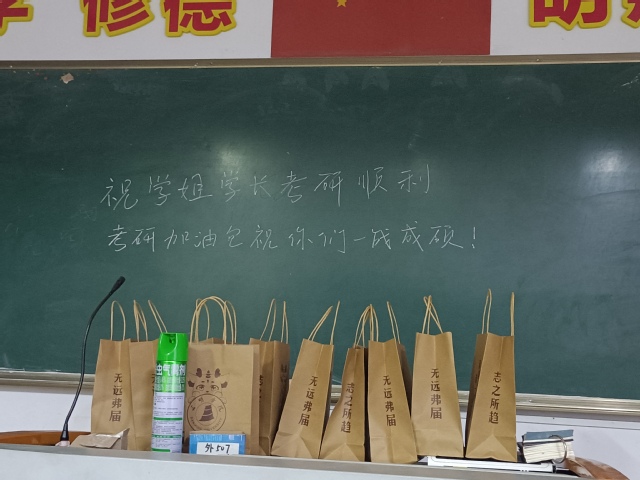 修德
明
祝学姐学长考研顺利
考研加油包祝你们一战成硕!
无远弗届
无远弗届
志之所趋
无远弗届
无远弗届
志之所趋
外507